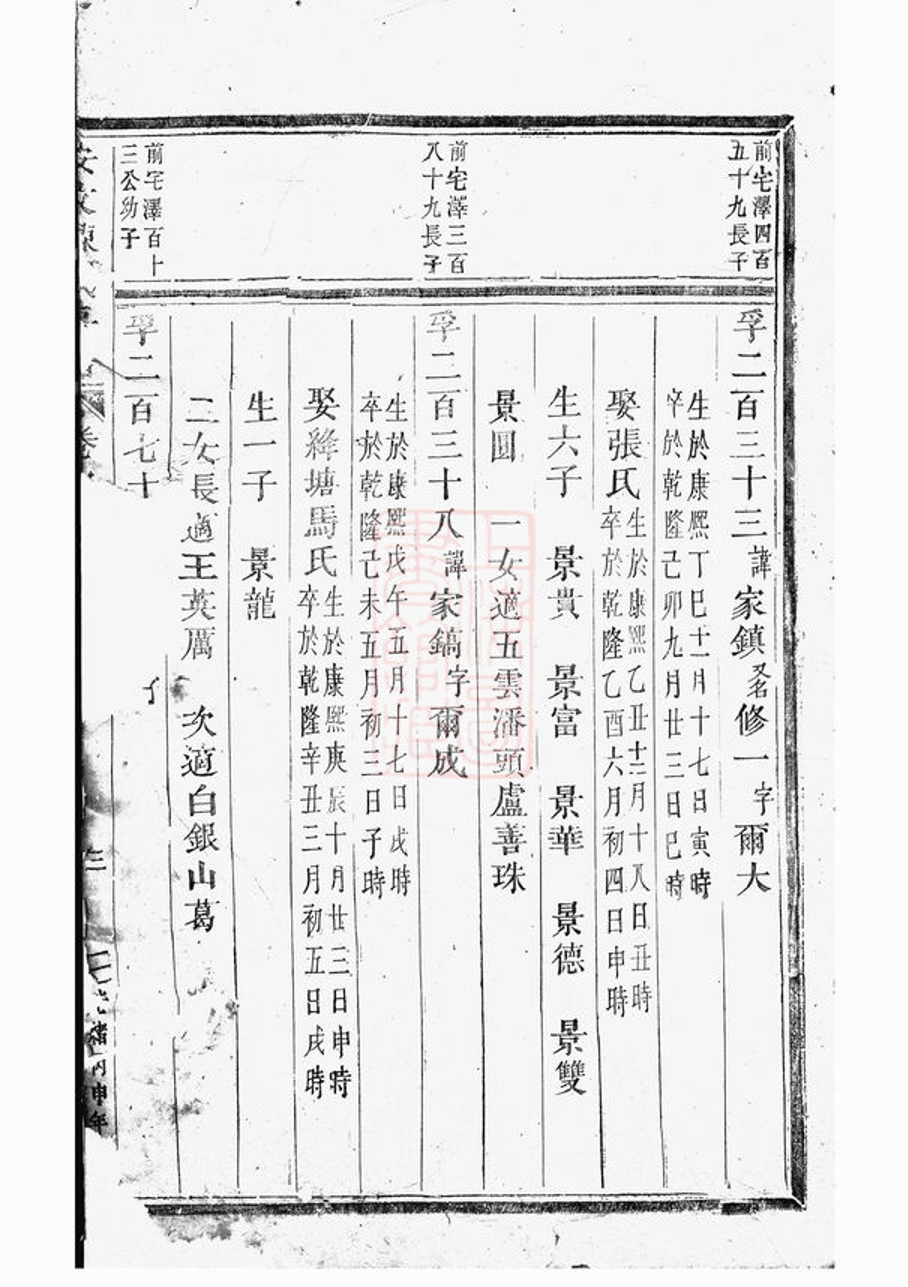 前宅澤四百
五十九長子
孚二百三十三諱家鎮又名修一字爾大
生於康熙丁巳十一月十七日寅時
卒於乾隆己卯九月廿三日巳時
娶張氏生於康熙乙丑十二月十八日丑時
卒於乾隆乙酉六月初四日申時
生六子 景貴 景富 景華 景德 景雙
景圓 一女適五雲潘頭盧善珠
前宅澤三百
八十九長子
孚二百三十八諱家鎬字爾成
生於康熙戊午五月十七日戌時
卒於乾隆己未五月初三日子時
娶絳塘馬氏生於康熙庚辰十月廿三日申時
卒於乾隆辛丑三月初五日戌時
生一子 景龍
二女長適王英厲 次適白銀山葛
前宅澤百十
三公幼子
孚二百七十
光緒丙申年